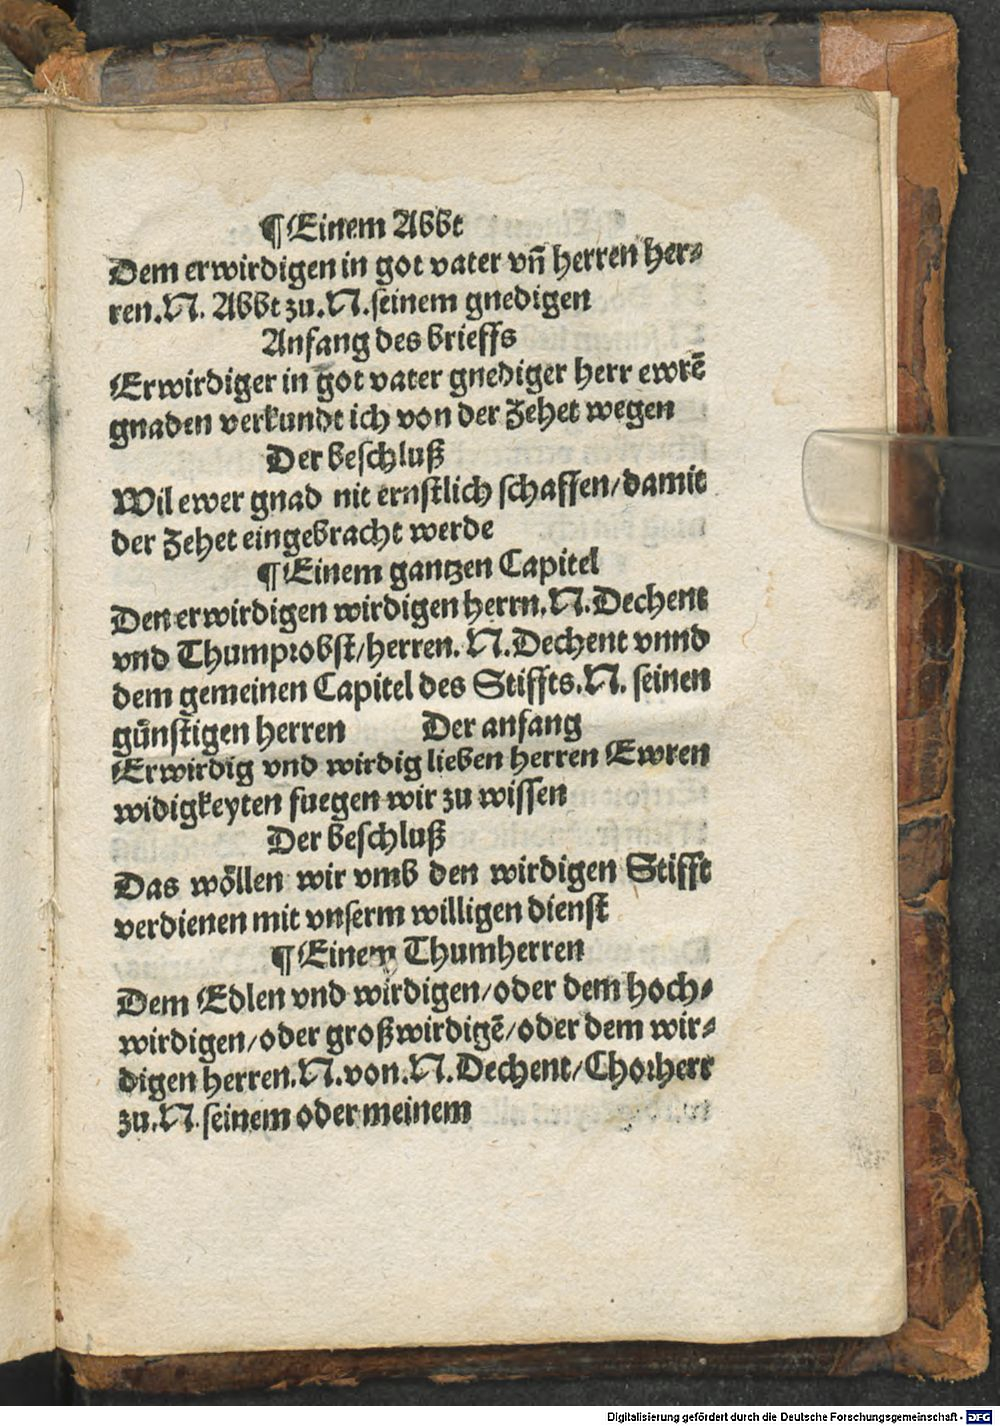 ¶ Einem Abbt
Dem erwirdigen in got vater vñ herren her⸗
ren. N. Abbt zu. N. seinem gnedigen
Anfang des brieffs
Erwirdiger in got vater gnediger herr ewrē
gnaden verkundt ich von der Zehet wegen
Der beschluß
Wil ewer gnad nit ernstlich schaffen/damit
der Zehet eingebracht werde
¶ Einem gantzen Capitel
Den erwirdigen wirdigen herrn. N. Dechent
vnd Thumprobst/herren. N. Dechent vnnd
dem gemeinen Capitel des Stiffts. N. seinen
gůnstigen herren Der anfang
Erwirdig vnd wirdig lieben herren Ewren
widigkeyten fuegen wir zu wissen
Der beschluß
Das wöllen wir vmb den wirdigen Stifft
verdienen mit vnserm willigen dienst
¶ Einem Thumherren
Dem Edlen vnd wirdigen/oder dem hoch⸗
wirdigen/oder großwirdigē/oder dem wir⸗
digen herren. N. von. N. Dechent/Chorherr
zu. N. seinem oder meinem
Digitalisierung gefördert durch die Deutsche Forschungsgemeinschaft - DFG